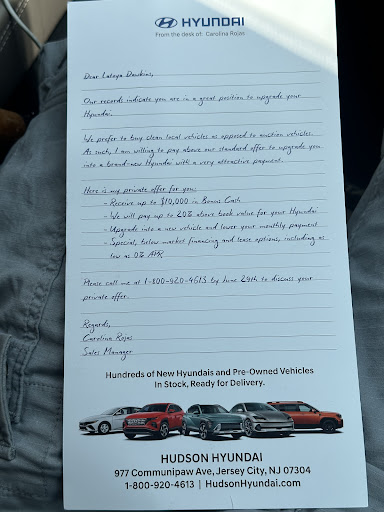 HYUNDAI
From the desk of: Carolina Rojas
Dear Latoya Dawkins,
Our records indicate you are in a great position to upgrade your
Hyundai.
We prefer to buy clean local vehicles as opposed to auction vehicles.
As such, I am willing to pay above our standard offer to upgrade you
into a brand-new Hyundai with a very attractive payment.
Here is my private offer for you:
- Receive up to $10,000 in Bonus Cash
- We will pay up to 20% above book value for your Hyundai
- Upgrade into a new vehicle and lower your monthly payment
- Special, below market financing and lease options, including as
low as 0% APR
Please call me at 1-800-920-4613 by June 29th to discuss your
private offer.
Regards,
Carolina Rojas
Sales Manager
Hundreds of New Hyundais and Pre-Owned Vehicles
In Stock, Ready for Delivery.
HUDSON HYUNDAI
977 Communipaw Ave, Jersey City, NJ 07304
1-800-920-4613 | HudsonHyundai.com